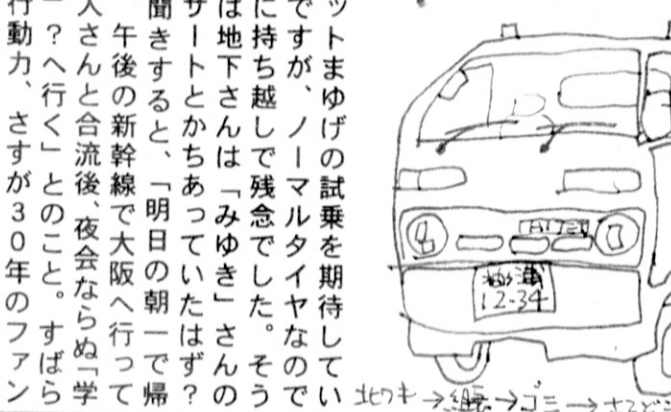 ットまゆげの試乗を期待してい
ですが、ノーマルタイヤなので
に持ち越しで残念でした。そう
は地下さんは「みゆき」さんの
サートとかちあっていたはず?
聞きすると、「明日の朝一で帰
午後の新幹線で大阪へ行って
人さんと合流後、夜会ならぬ「学
?へ行く」とのこと。すばら
行動力、さすが30年のファン
12-34
→ゴミ→